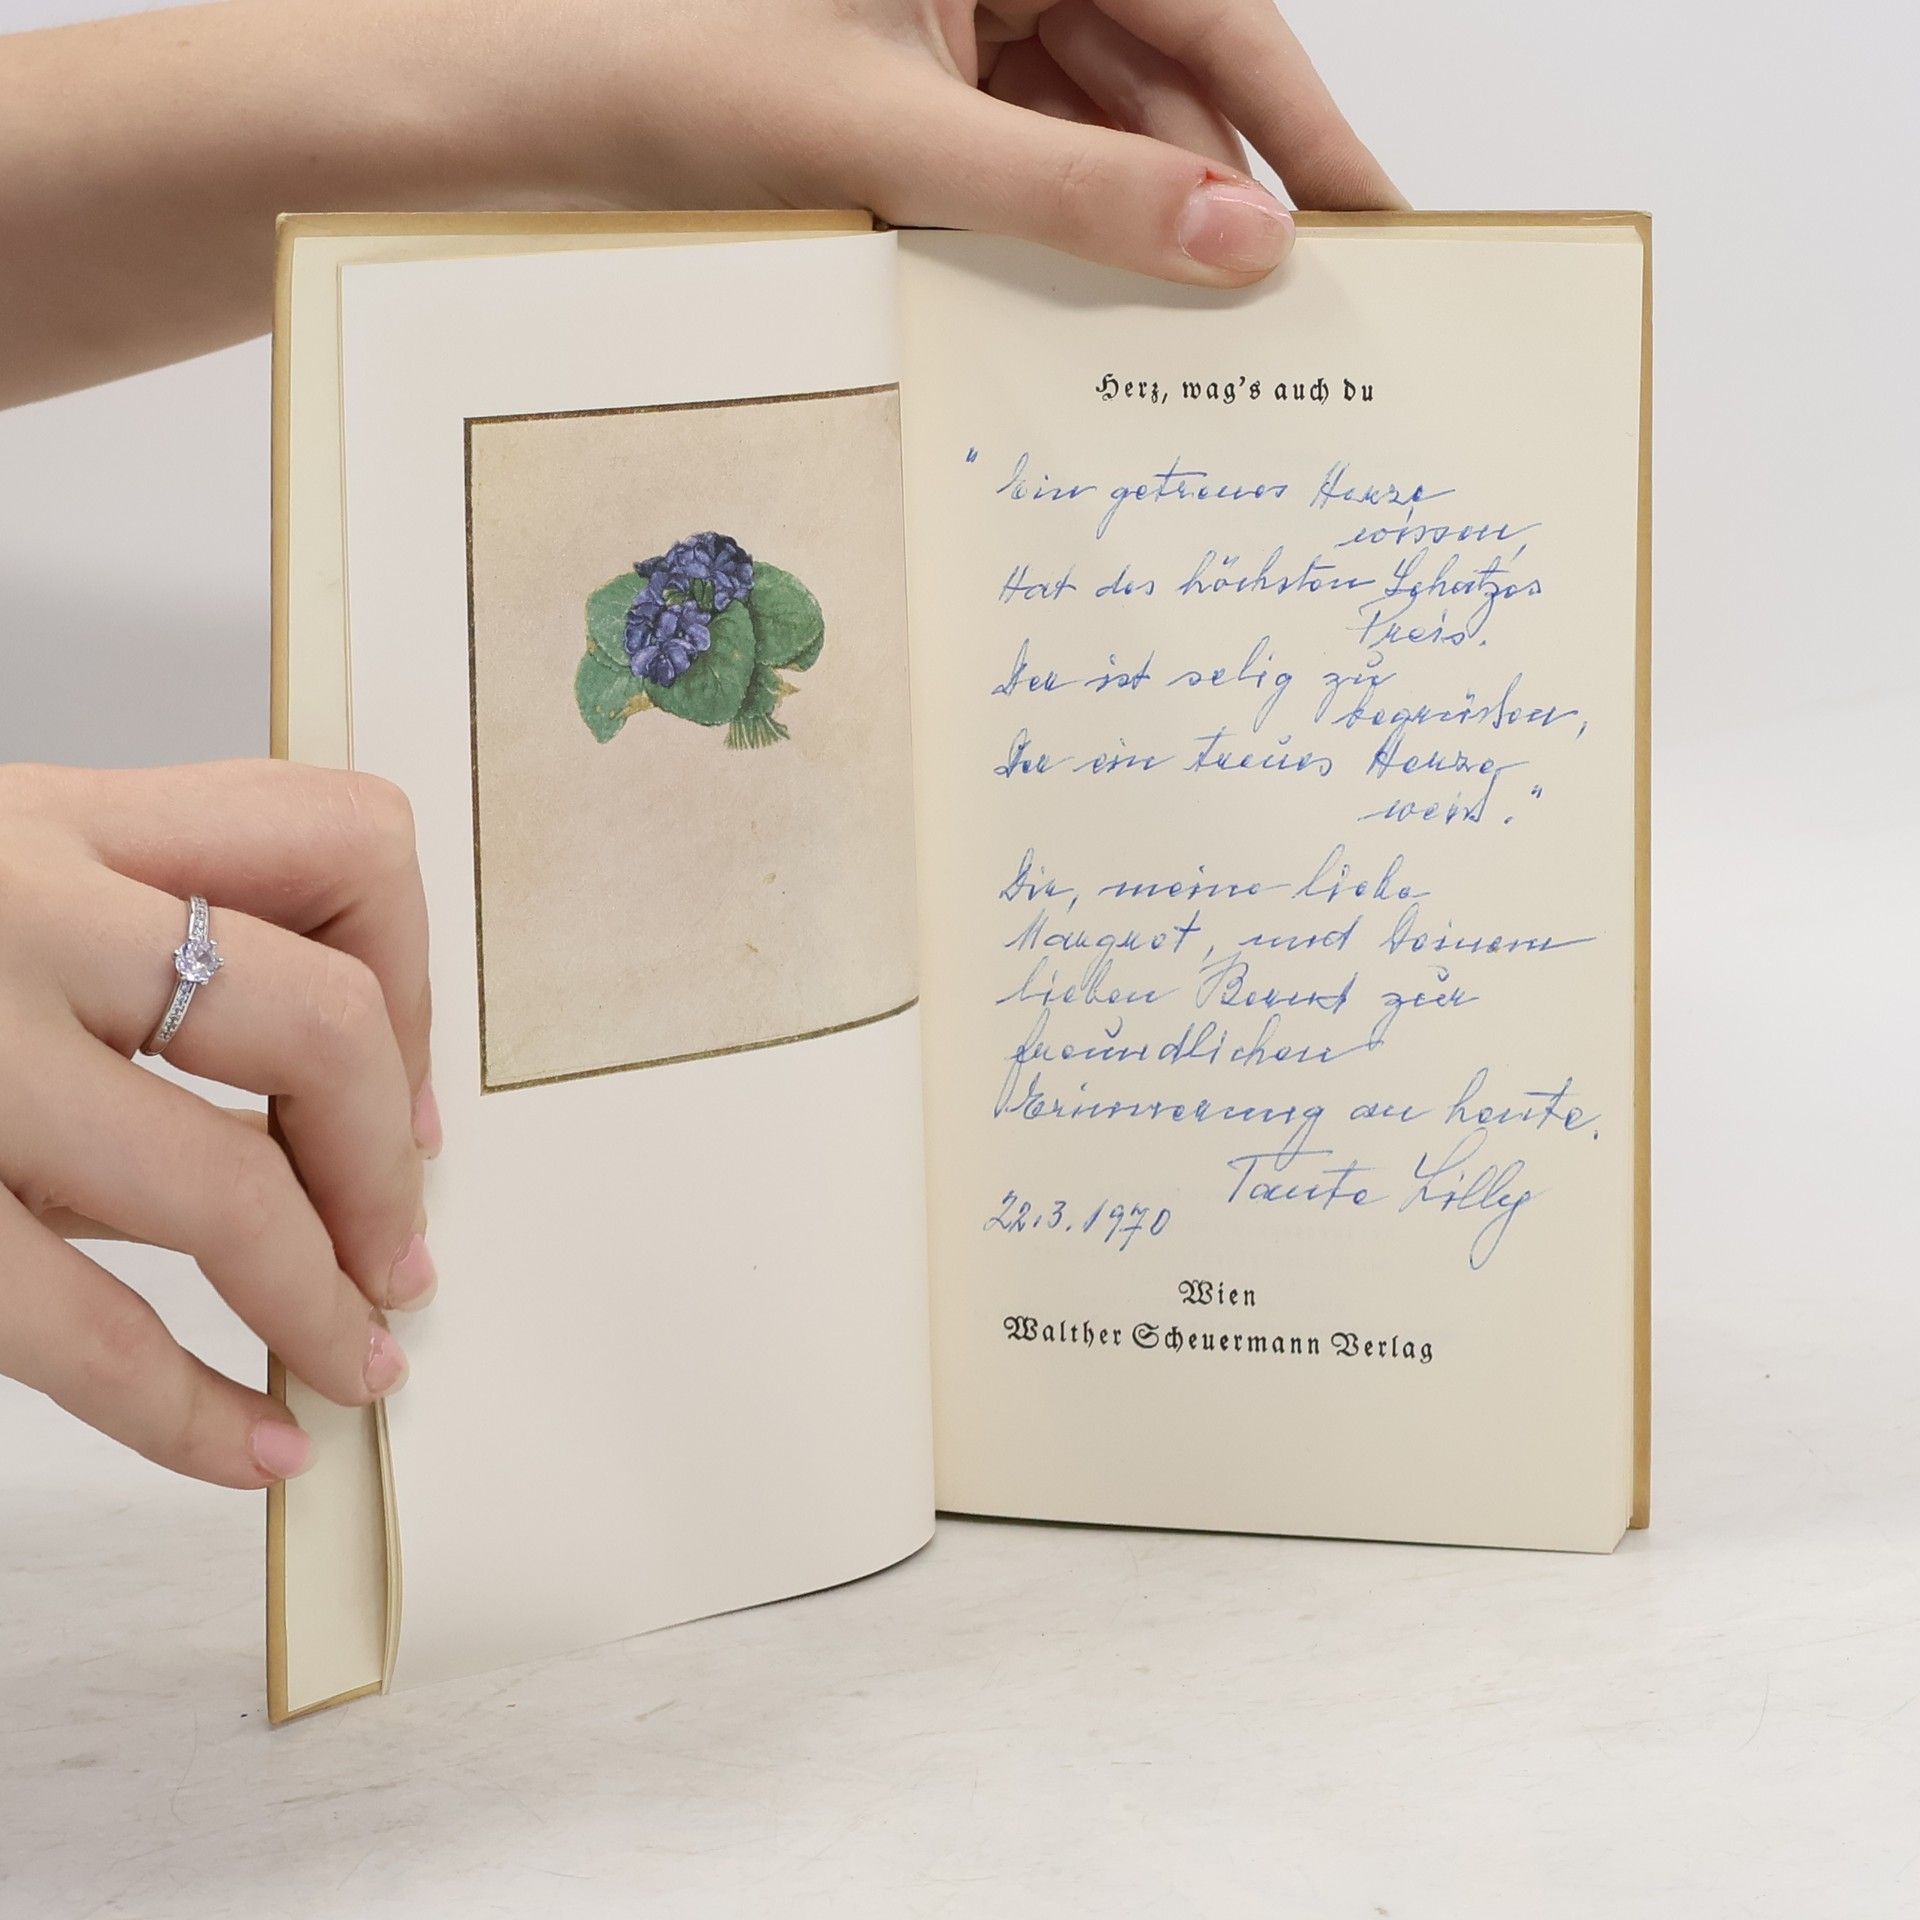 Herz, wag's auch du
"Ein getreues Herze
wissen,
Hat des höchsten Schatzes
Preis.
Der ist selig zu
begrüßen,
Der ein treues Herze
weiß."
Dir, meine liebe
Margret, und Deinem
lieben Bernd zur
freundlichen
Erinnerung an heute.
Tante Lilly
22.3.1970
Wien
Walther Scheuermann Verlag